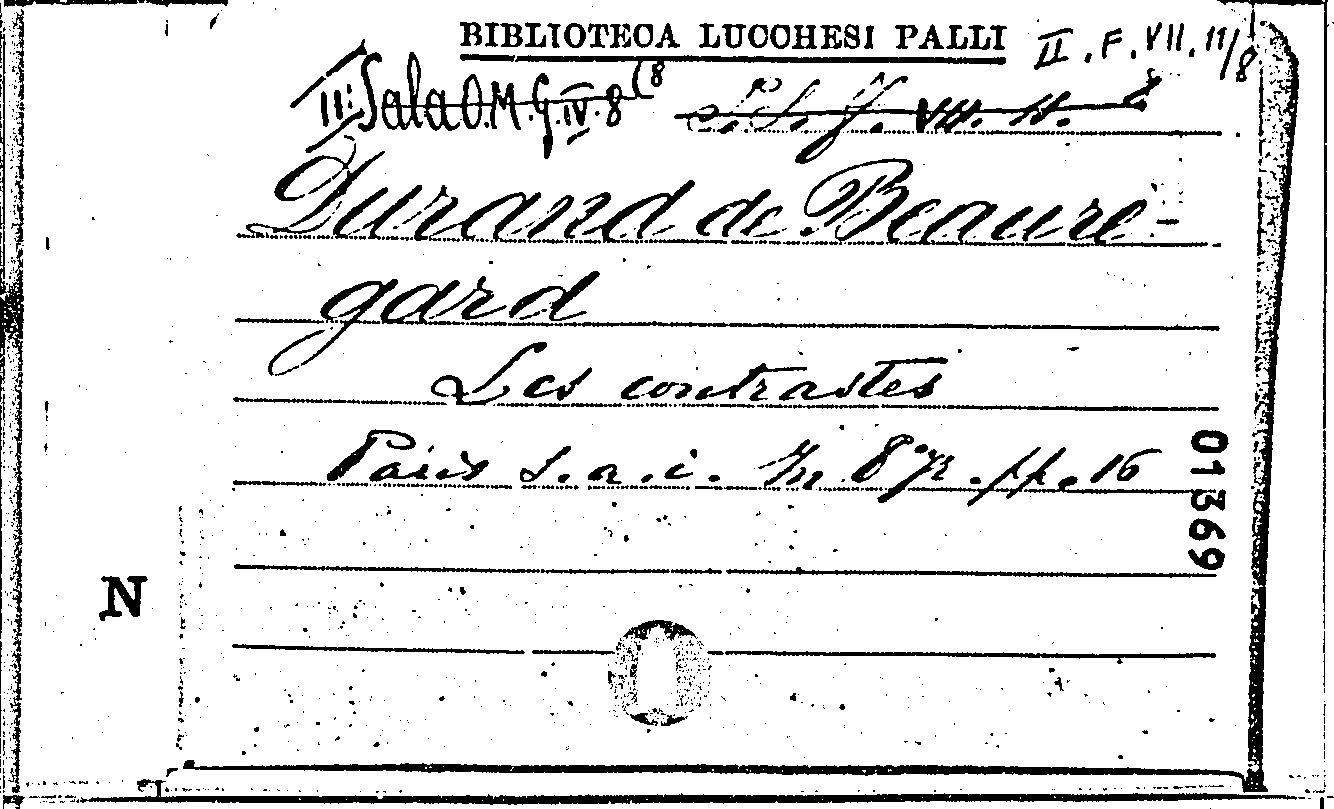 BIBLIOTECA LUCCHESI PALLI II. F. VII. 11/8
II: Sala O.M.G.IV.8 (8
VII. 11. 8
Durand de Beaure-
gard
Les contrastes
Paris s. a. i. In 8° pp. 16
01369
N